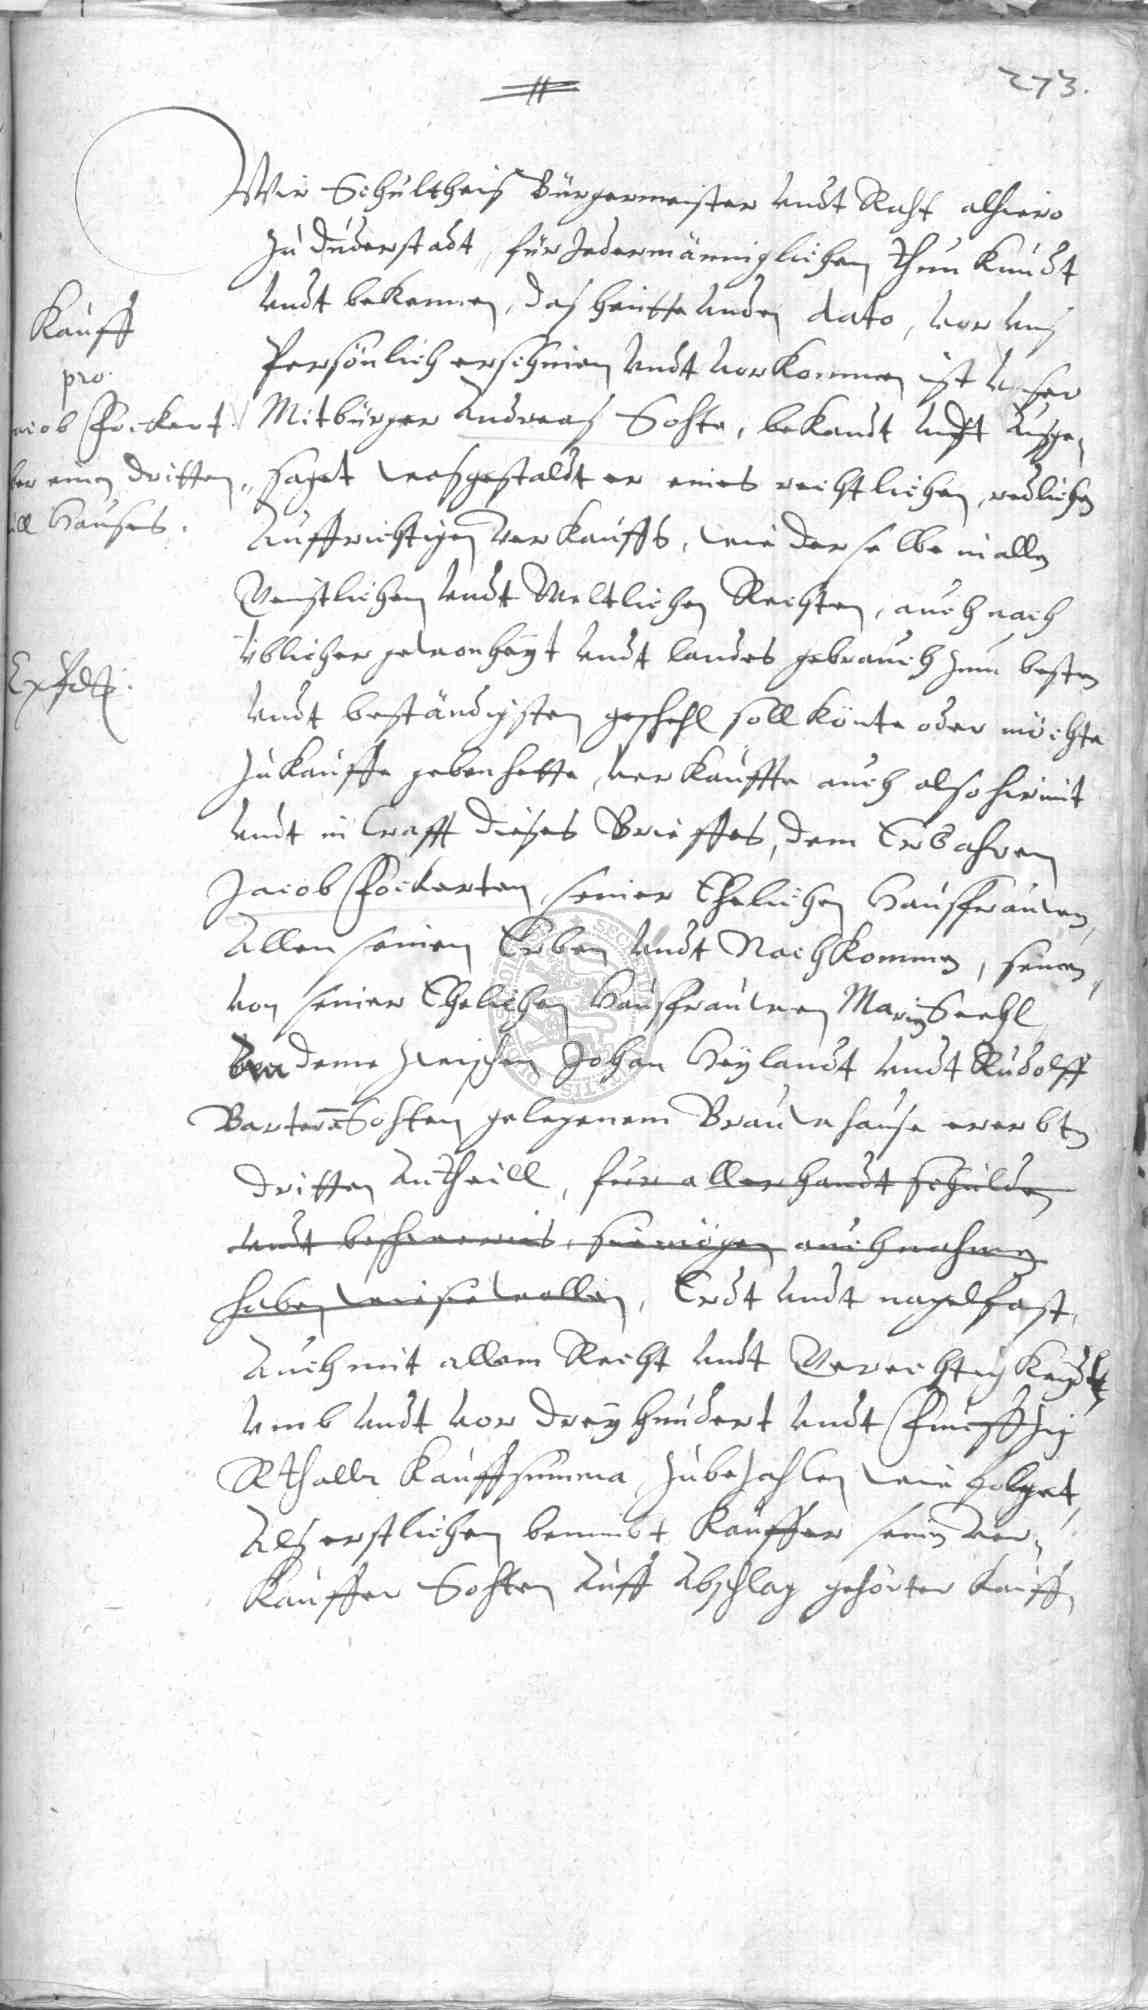 273.
Wir Schultheis Bürgermeister undt Raht alhiero
zu Duderstadt, für Jedermänniglichen Thun Kundt
undt bekennen, das heutte unden dato, vor uns
Persönlich erschinen undt vorkommen ist unser
Mitbürger Andreas Sohte, bekandt undt Ausge-
saget wasgestaldt er eines rechtlichen, redlichen
Auffrichtigen Verkauffs, wie derselbe in allen
Geistlichen undt Weltlichen Rechten, auch nach
üblicher gewonheyt undt landes gebrauch zum besten
undt beständigsten soll könte oder möchte
zu kauffe geben hette, verkauffte auch also hirmit
undt in Crafft dieses Brieffes, dem Erbahren
Jacob Fockerten, seiner Ehelichen Hausfrauwen,
Allen seinen Erben undt Nachkommen, seinen
von seiner Ehelichen Hausfrauwen Marien Seehl
deme zwischen Johan Heylandt undt Rudolff
Sohten gelegenem Brauwhause ererbten
dritten Antheill, für allerhandt schulden
undt beschwernis, sie mögen auch nahmen
haben wie sie wollen, Erdt undt nagelfast,
Auch mit allem Recht undt Gerechtigkeydt
umb undt vor dreyhundert undt Funffzig
Rthaller Kauffsumma zubezahlen wie folget,
Als erstlichen benimbt Kauffer sein Ver-
kauffer Sohten Auff Abschlag gehörter Kauff
Kauff
pro
Jacob Fockert
ber einen dritten
ill Hauses.